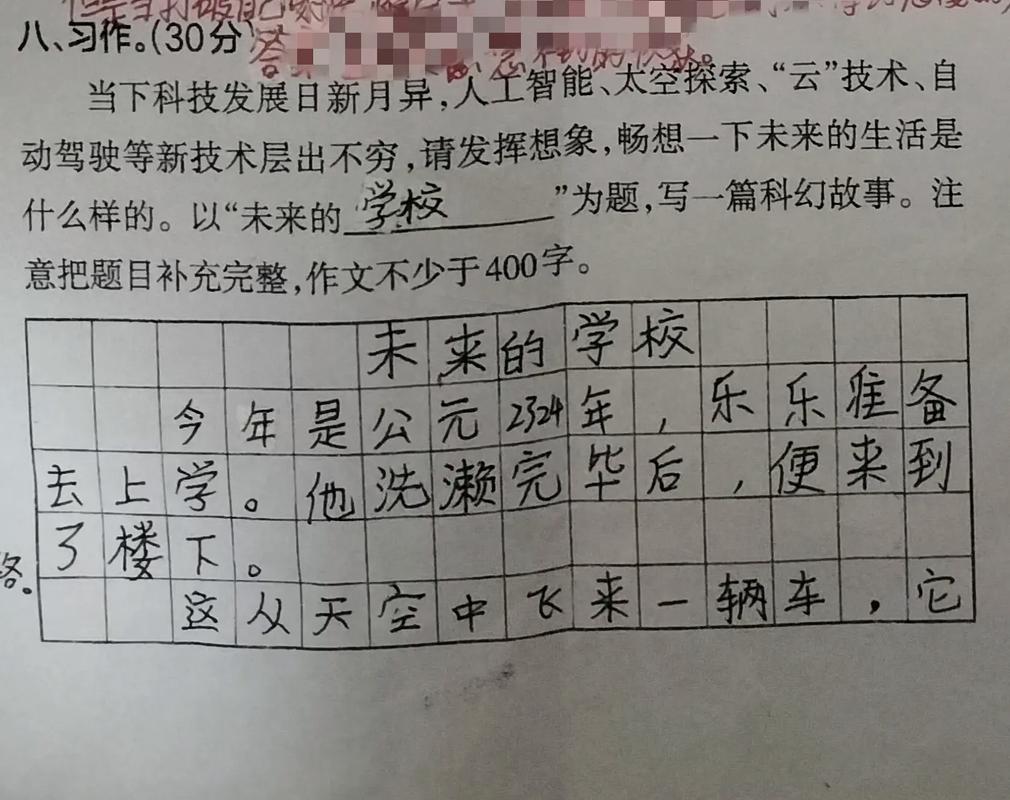 八、习作。(30分)
当下科技发展日新月异,人工智能、太空探索、“云”技术、自
动驾驶等新技术层出不穷,请发挥想象,畅想一下未来的生活是
什么样的。以“未来的学校”为题,写一篇科幻故事。注
意把题目补充完整,作文不少于400字。
未来的学校
今年是公元2324年,乐乐准备
去上学。他洗濑完毕后,便来到
了楼下。
这从天空中飞来一辆车,它